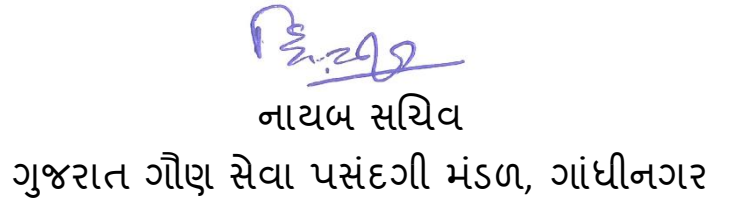 નાયબ સચિવ
ગુજરાત ગૌણ સેવા પસંદગી મંડળ, ગાંધીનગર